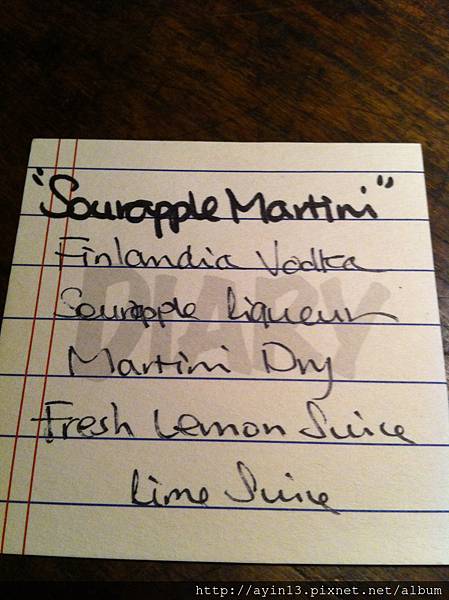 "Sourapple Martini"
Finlandia Vodka
Sourapple Liqueur
DIARY
Martini Dry
Fresh Lemon Juice
Lime Juice
http://ayin13.pixnet.net/album